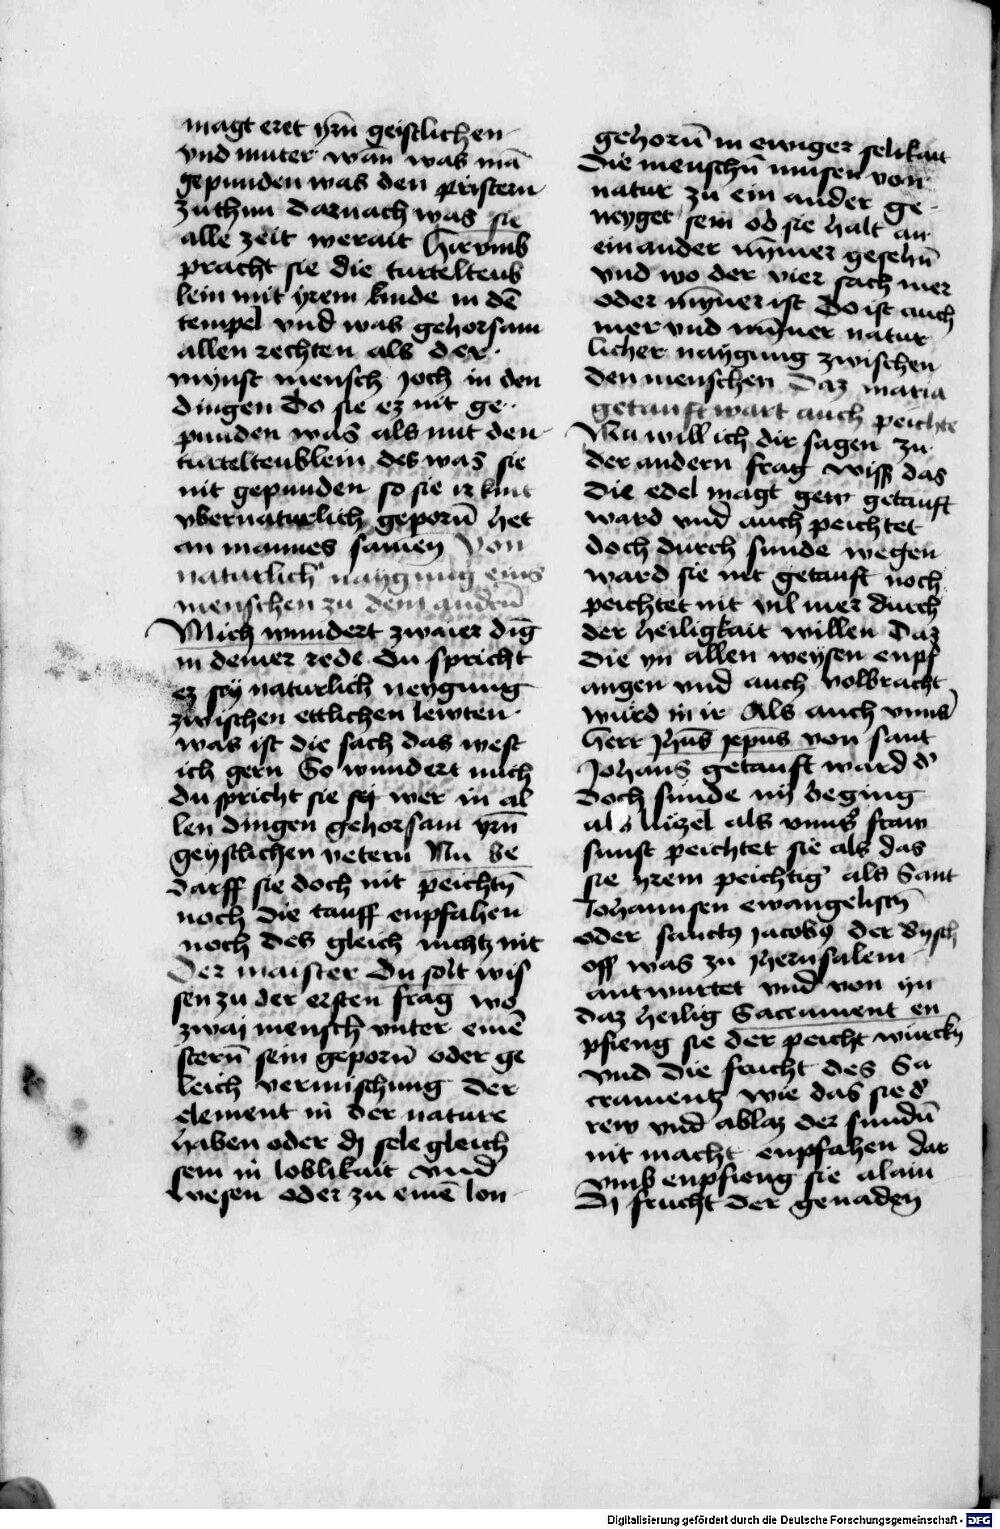 magt eret yrn̄ geistlichen
vnd muter wān was mā
gepunden was den pristern
zuthun darnach was sie
alle zeit werait Hirvmb
pracht sie die turtelteub
lein mit yrem kinde in dē
tempel vnd was gehorsam
allen rechten als der
mynst mensch joch in den
dingen do sie ez nit ge
punden was als mit den
turteltenblein des was sie
nit gepunden so sie ir kint
vbernaturlich geporn̄ het
an mannes samen Von
naturlich' naygung eins
menschen zu dem andern̄
Mich wundert zwaier dīg
in deiner rede du spricht
ez sey naturlich neygung
zwischen ettlichen lewten
was ist die sach das west
ich gern So wundert mich
du spricht sie sej wer in al
len dingen gehorsam yrn̄
geystlichen vetern Nu be
darff sie doch nit peichtn̄
noch die tauff enpfahen
noch des gleich nichtz nit
Der maister Du solt wis
sen zu der ersten frag wo
zwai mensch̄ vnter einē
stern̄ sein geporn̄ oder ge
leich vermischung der
element in der nature
haben oder dj sele gleich
sein in loblikait vnd
wesen oder zu einē lon
gehorn̄ in ewiger selikait
Die menschn̄ musen von
natur zu ein ander ge
neyget sein ob sie halt an
ein ander nȳmer gesehn̄
vnd wo der vier sach mer
oder mȳner ist Do ist auch
mer vnd mȳner natur
licher naygung zwischen
den menschen Daz maria
getauft wart auch peichte
Nu will ich dir sagen zu
der andern frag wiss das
die edel magt gew getauft
ward vnd auch peichtet
doch durch sunde wegen
ward sie nit getauft noch
peichtet nit vil mer durch
der heiligkait willen Daz
die yn allen weysen enpf
angen vnd auch volbracht
wurd in ir Als auch vnns'
Herr Jhūs xp̄us von sant
Johans getauft ward d'
doch sunde nÿ beging
als luzel als vnns' fraw
sunst peichtet sie als das
sie yrem peichtig' als Sant
Johannsen ewangelistn̄
oder sanctꝰ jacobꝰ der Bysch
off was zu Jherusalem
antwurtet vnd von yn
daz heilig Sacrament en
pfieng sie der peicht wurckn̄
vnd die frucht des Sa
craments wie das sie d'
rew vnd ablaz der sundn̄
nit macht enpfahen dar
vmb enpfieng sie alain
Dj frucht der genaden
Digitalisierung gefördert durch die Deutsche Forschungsgemeinschaft - DFG